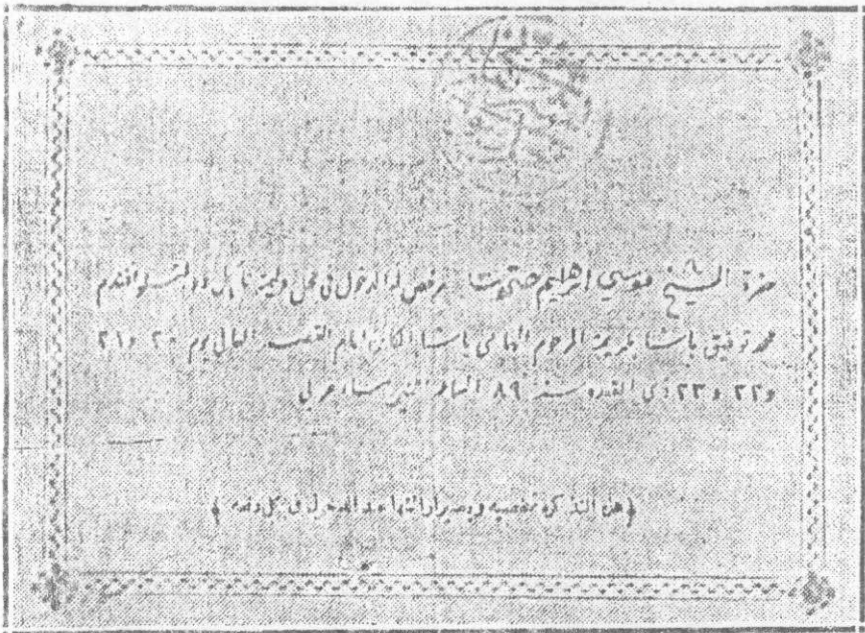 حضرة الشيخ موسي ابراهيم مرخص له الدخول في محل وليمة تأهيل دولتلو افندم
محمد توفيق باشا بكريمة المرحوم الهامي باشا الكائن امام القصر العالي يوم ٢٠ و٢١
و٢٢ و٢٣ ذي القعدة سنة ٨٩ الساعة عربي
﴿ هذه التذكرة شخصية ويصير ارائتها عند الدخول في كل دفعه ﴾